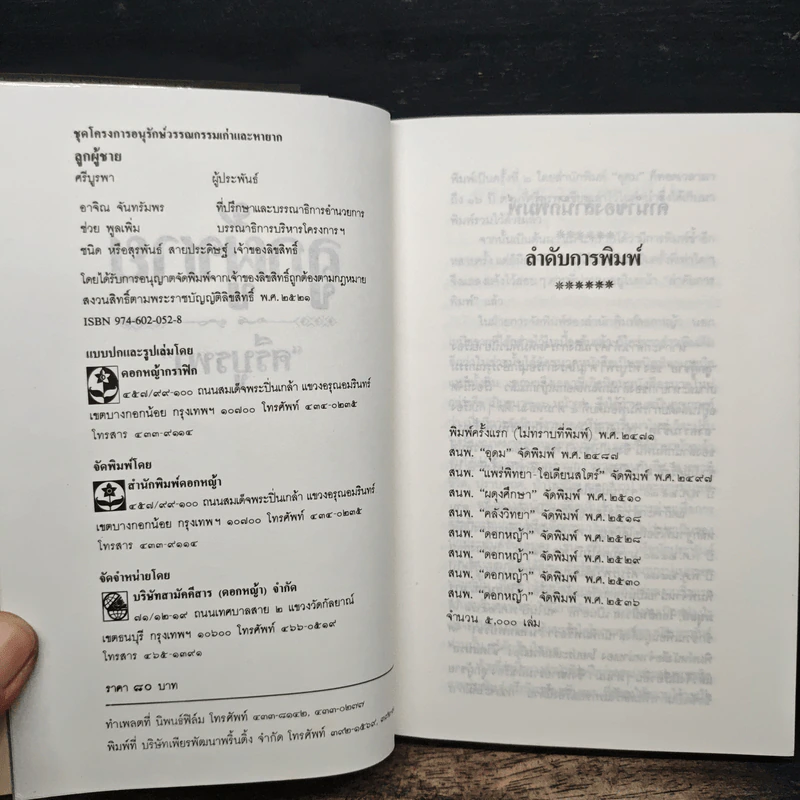 ชุดโครงการอนุรักษ์วรรณกรรมเก่าและหายาก
ลูกผู้ชาย
ศรีบูรพา ผู้ประพันธ์
อาจิณ จันทรัมพร ที่ปรึกษาและบรรณาธิการอำนวยการ
ช่วย พูลเพิ่ม บรรณาธิการบริหารโครงการฯ
ชนิด หรือสุรพันธ์ สายประดิษฐ์ เจ้าของลิขสิทธิ์
โดยได้รับการอนุญาตจัดพิมพ์จากเจ้าของลิขสิทธิ์ถูกต้องตามกฎหมาย
สงวนสิทธิ์ตามพระราชบัญญัติลิขสิทธิ์ พ.ศ. ๒๕๒๑
ISBN 974-602-052-8
แบบปกและรูปเล่มโดย
ดอกหญ้ากราฟิก
๔๕๗/๙๙-๑๐๐ ถนนสมเด็จพระปิ่นเกล้า แขวงอรุณอมรินทร์
เขตบางกอกน้อย กรุงเทพฯ ๑๐๗๐๐ โทรศัพท์ ๔๓๔-๐๒๓๕
โทรสาร ๔๓๓-๙๑๑๔
จัดพิมพ์โดย
สำนักพิมพ์ดอกหญ้า
๔๕๗/๙๙-๑๐๐ ถนนสมเด็จพระปิ่นเกล้า แขวงอรุณอมรินทร์
เขตบางกอกน้อย กรุงเทพฯ ๑๐๗๐๐ โทรศัพท์ ๔๓๔-๐๒๓๕
โทรสาร ๔๓๓-๙๑๑๔
จัดจำหน่ายโดย
บริษัทสามัคคีสาร (ดอกหญ้า) จำกัด
๗๑/๑๒-๑๙ ถนนเทศบาลสาย ๒ แขวงวัดกัลยาณ์
เขตธนบุรี กรุงเทพฯ ๑๐๖๐๐ โทรศัพท์ ๔๖๖-๐๕๑๙
โทรสาร ๔๖๕-๑๓๙๑
ราคา ๘๐ บาท
ทำเพลตที่ นิพนธ์ฟิล์ม โทรศัพท์ ๔๓๓-๘๑๔๒, ๔๓๓-๐๒๗๗
พิมพ์ที่ บริษัทเพียรพัฒนาพริ้นติ้ง จำกัด โทรศัพท์ ๓๙๒-๑๕๖๙,
ลำดับการพิมพ์
******
พิมพ์ครั้งแรก (ไม่ทราบที่พิมพ์) พ.ศ. ๒๔๗๑
สนพ. “อุดม” จัดพิมพ์ พ.ศ. ๒๔๘๗
สนพ. “แพร่พิทยา-โอเดียนสโตร์” จัดพิมพ์ พ.ศ. ๒๔๙๗
สนพ. “ผดุงศึกษา” จัดพิมพ์ พ.ศ. ๒๕๑๐
สนพ. “คลังวิทยา” จัดพิมพ์ พ.ศ. ๒๕๑๘
สนพ. “ดอกหญ้า” จัดพิมพ์ พ.ศ. ๒๕๒๘
สนพ. “ดอกหญ้า” จัดพิมพ์ พ.ศ. ๒๕๒๙
สนพ. “ดอกหญ้า” จัดพิมพ์ พ.ศ. ๒๕๓๐
สนพ. “ดอกหญ้า” จัดพิมพ์ พ.ศ. ๒๕๓๖
จำนวน ๕,๐๐๐ เล่ม